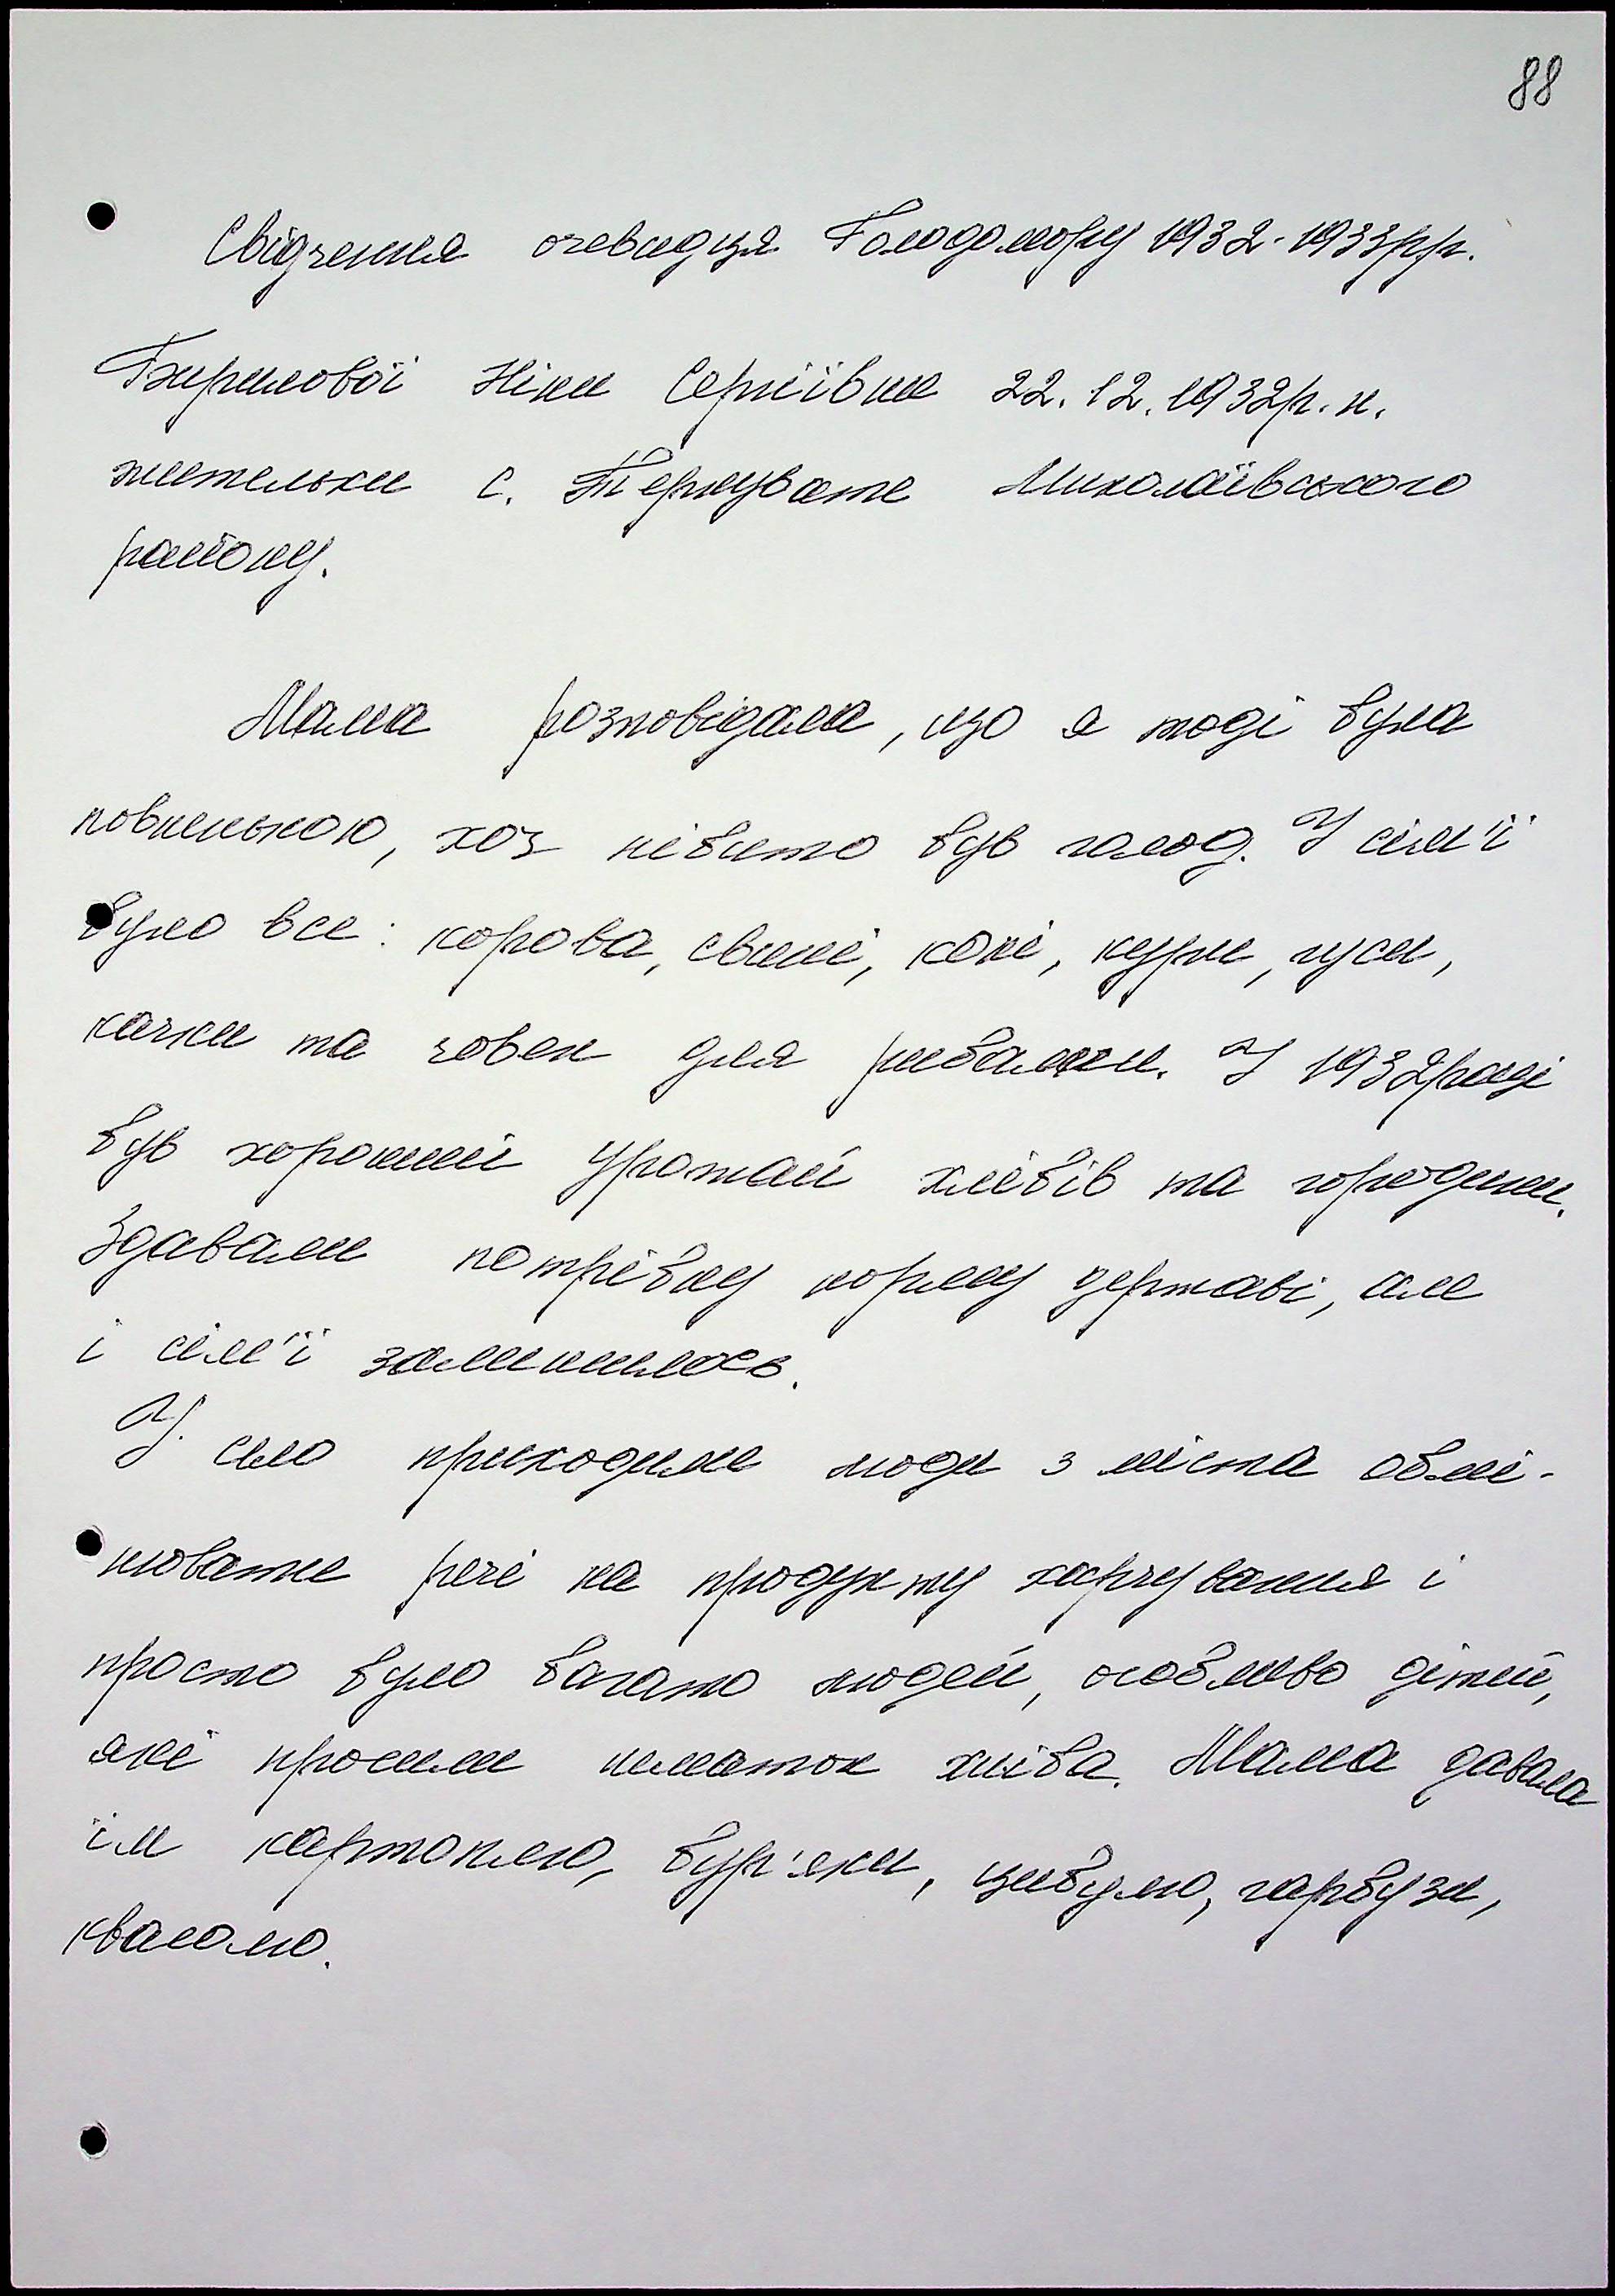 88
Свідчення очевидця Голодомору 1932-1933рр.
Ніни Сергіївни 22.12.1932р.н.
жительки с. Тернувате Миколаївського
району.
Мама розповідала, що я тоді була
повненькою, хоч нібито був голод. У сім'ї
було все: корова, свині, коні, кури, гуси,
качки та човен для рибалки. У 1932році
був хороший урожай хлібів та городини.
Здавали потрібну норму державі, але
і сім'ї залишилось.
У село приходили люди з міста обмі-
нювати речі на продукту харчування і
просто було багато людей, особливо дітей,
які просили шматок хліба. Мама давала
їм картоплю, бур'яки, цибулю, гарбузи,
квасолю.